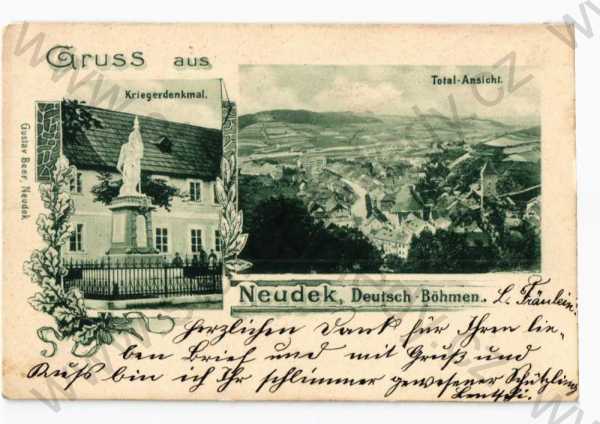 Gruss aus
Kriegerdenkmal.
Total-Ansicht.
Gustav Beer, Neudek.
Neudek, Deutsch-Böhmen.
L. Fräulein!
Herzlichen Dank für Ihren lie-
ben Brief und mit Gruß und
Kuss bin ich Ihr schlimmer gewesener Schützling